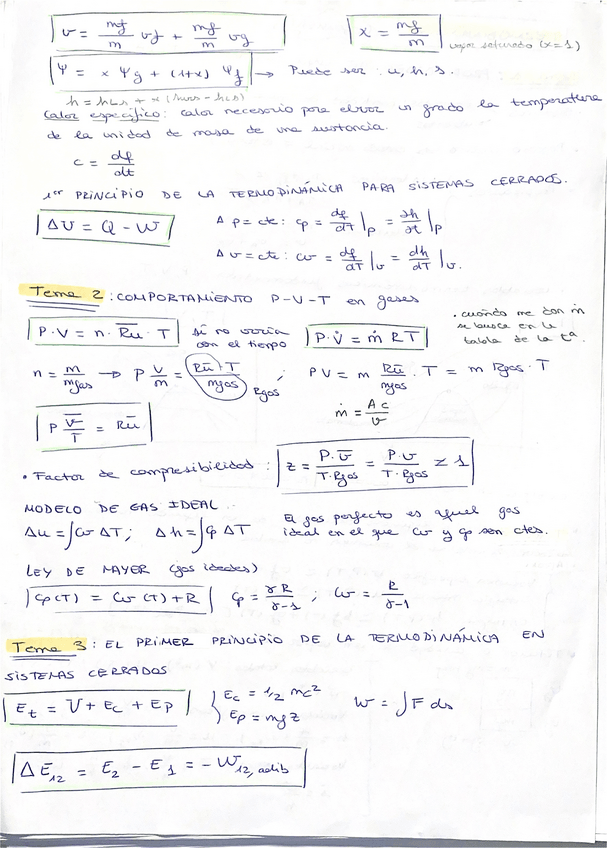 v = mf/m vf + mg/m vg
x = mg/m vapor saturado (x=1)
Ψ = x Ψg + (1+x) Ψf → Puede ser: u, h, s.
h = hLs + x (hvs - hLs)
Calor específico: calor necesario para elevar un grado la temperatura
de la unidad de masa de una sustancia.
c = df/dt
1er PRINCIPIO DE LA TERMODINÁMICA PARA SISTEMAS CERRADOS.
ΔU = Q - W
A p=cte: cp = df/dT |p = ∂h/∂t |p
A v=cte: cv = df/dT |v = dh/dT |v.
Tema 2: COMPORTAMIENTO P-V-T en gases
P·V = n·Ru·T si no varía con el tiempo P·V̇ = ṁ R T
· cuando me dan ṁ
se busca en la
tabla de la tª
n = m/mgas → P V/m = Ru·T/mgas Rgas ; PV = m Ru/mgas · T = m Rgas · T
P v̄/T = Ru
ṁ = A c/v
· Factor de compresibilidad: z = P·v̄/T·Rgas = P·v/T·Rgas ≠ 1
MODELO DE GAS IDEAL
Δu = ∫cv ΔT; Δh = ∫cp ΔT
El gas perfecto es aquel gas
ideal en el que cv y cp son ctes.
LEY DE MAYER (gas ideales)
cp(T) = cv(T) + R cp = γR/γ-1 ; cv = R/γ-1
Tema 3: EL PRIMER PRINCIPIO DE LA TERMODINÁMICA EN
SISTEMAS CERRADOS
Et = U + Ec + Ep
Ec = 1/2 mc²
Ep = mgz
W = ∫F ds
ΔE12 = E2 - E1 = -W12, adib